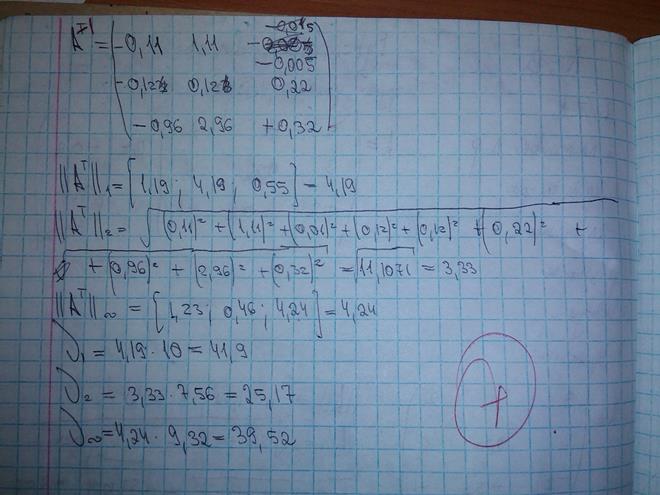 -0,015
A⁻¹ = -0,11 1,11
-0,005
-0,12 0,12 0,22
-0,96 2,96 +0,32
||Aᵀ||₁ = [1,19; 4,19; 0,55] = 4,19
||Aᵀ||₂ = √(0,11)² + (1,11)² + (0,01)² + (0,12)² + (0,12)² + (0,22)² +
+ (0,96)² + (2,96)² + (0,32)² = √11,1071 = 3,33
||Aᵀ||∞ = [1,23; 0,46; 4,24] = 4,24
ν₁ = 4,19 · 10 = 41,9
ν₂ = 3,33 · 7,56 = 25,17
ν∞ = 4,24 · 9,32 = 39,52
+